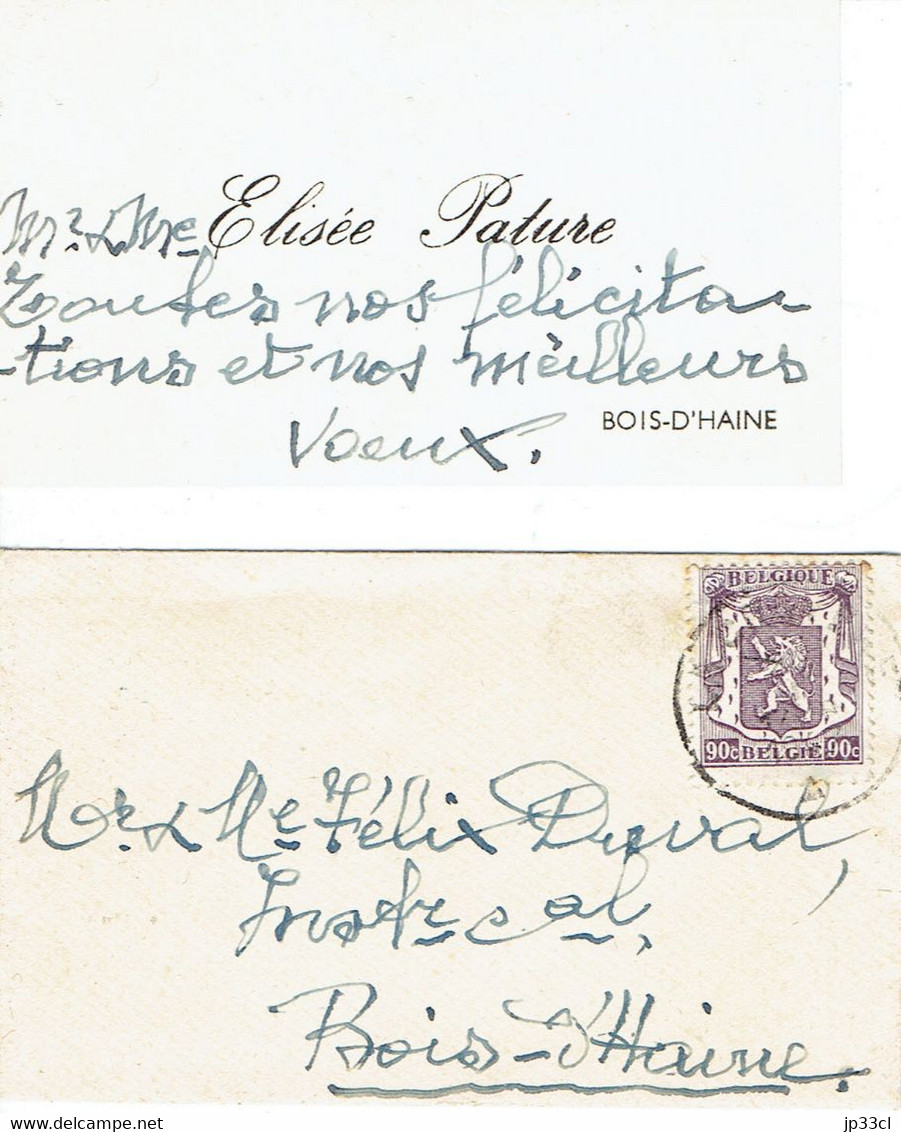 Mr & Me Elisée Pature
Toutes nos félicita-
-tions et nos meilleurs
voeux.
BOIS-D'HAINE
BELGIQUE
90c BELGIE 90c
Mr & Me Félix Duval,
Instr cal,
Bois-d'Haine.
delcampe.net
jp33cl